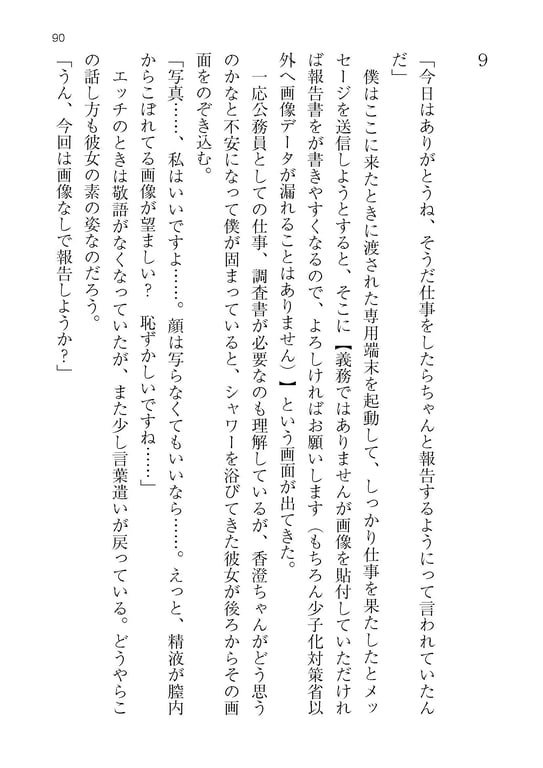 90
9
「今日はありがとうね、そうだ仕事をしたらちゃんと報告するようにって言われていたん
だ」
　僕はここに来たときに渡された専用端末を起動して、しっかり仕事を果たしたとメッ
セージを送信しようとすると、そこに【義務ではありませんが画像を貼付していただけれ
ば報告書をが書きやすくなるので、よろしければお願いします（もちろん少子化対策省以
外へ画像データが漏れることはありません）】という画面が出てきた。
　一応公務員としての仕事、調査書が必要なのも理解しているが、香澄ちゃんがどう思う
のかなと不安になって僕が固まっていると、シャワーを浴びてきた彼女が後ろからその画
面をのぞき込む。
「写真……、私はいいですよ……。顔は写らなくてもいいなら……。えっと、精液が膣内
からこぼれてる画像が望ましい？　恥ずかしいですね……」
　エッチのときは敬語がなくなっていたが、また少し言葉遣いが戻っている。どうやらこ
の話し方も彼女の素の姿なのだろう。
「うん、今回は画像なしで報告しようか？」